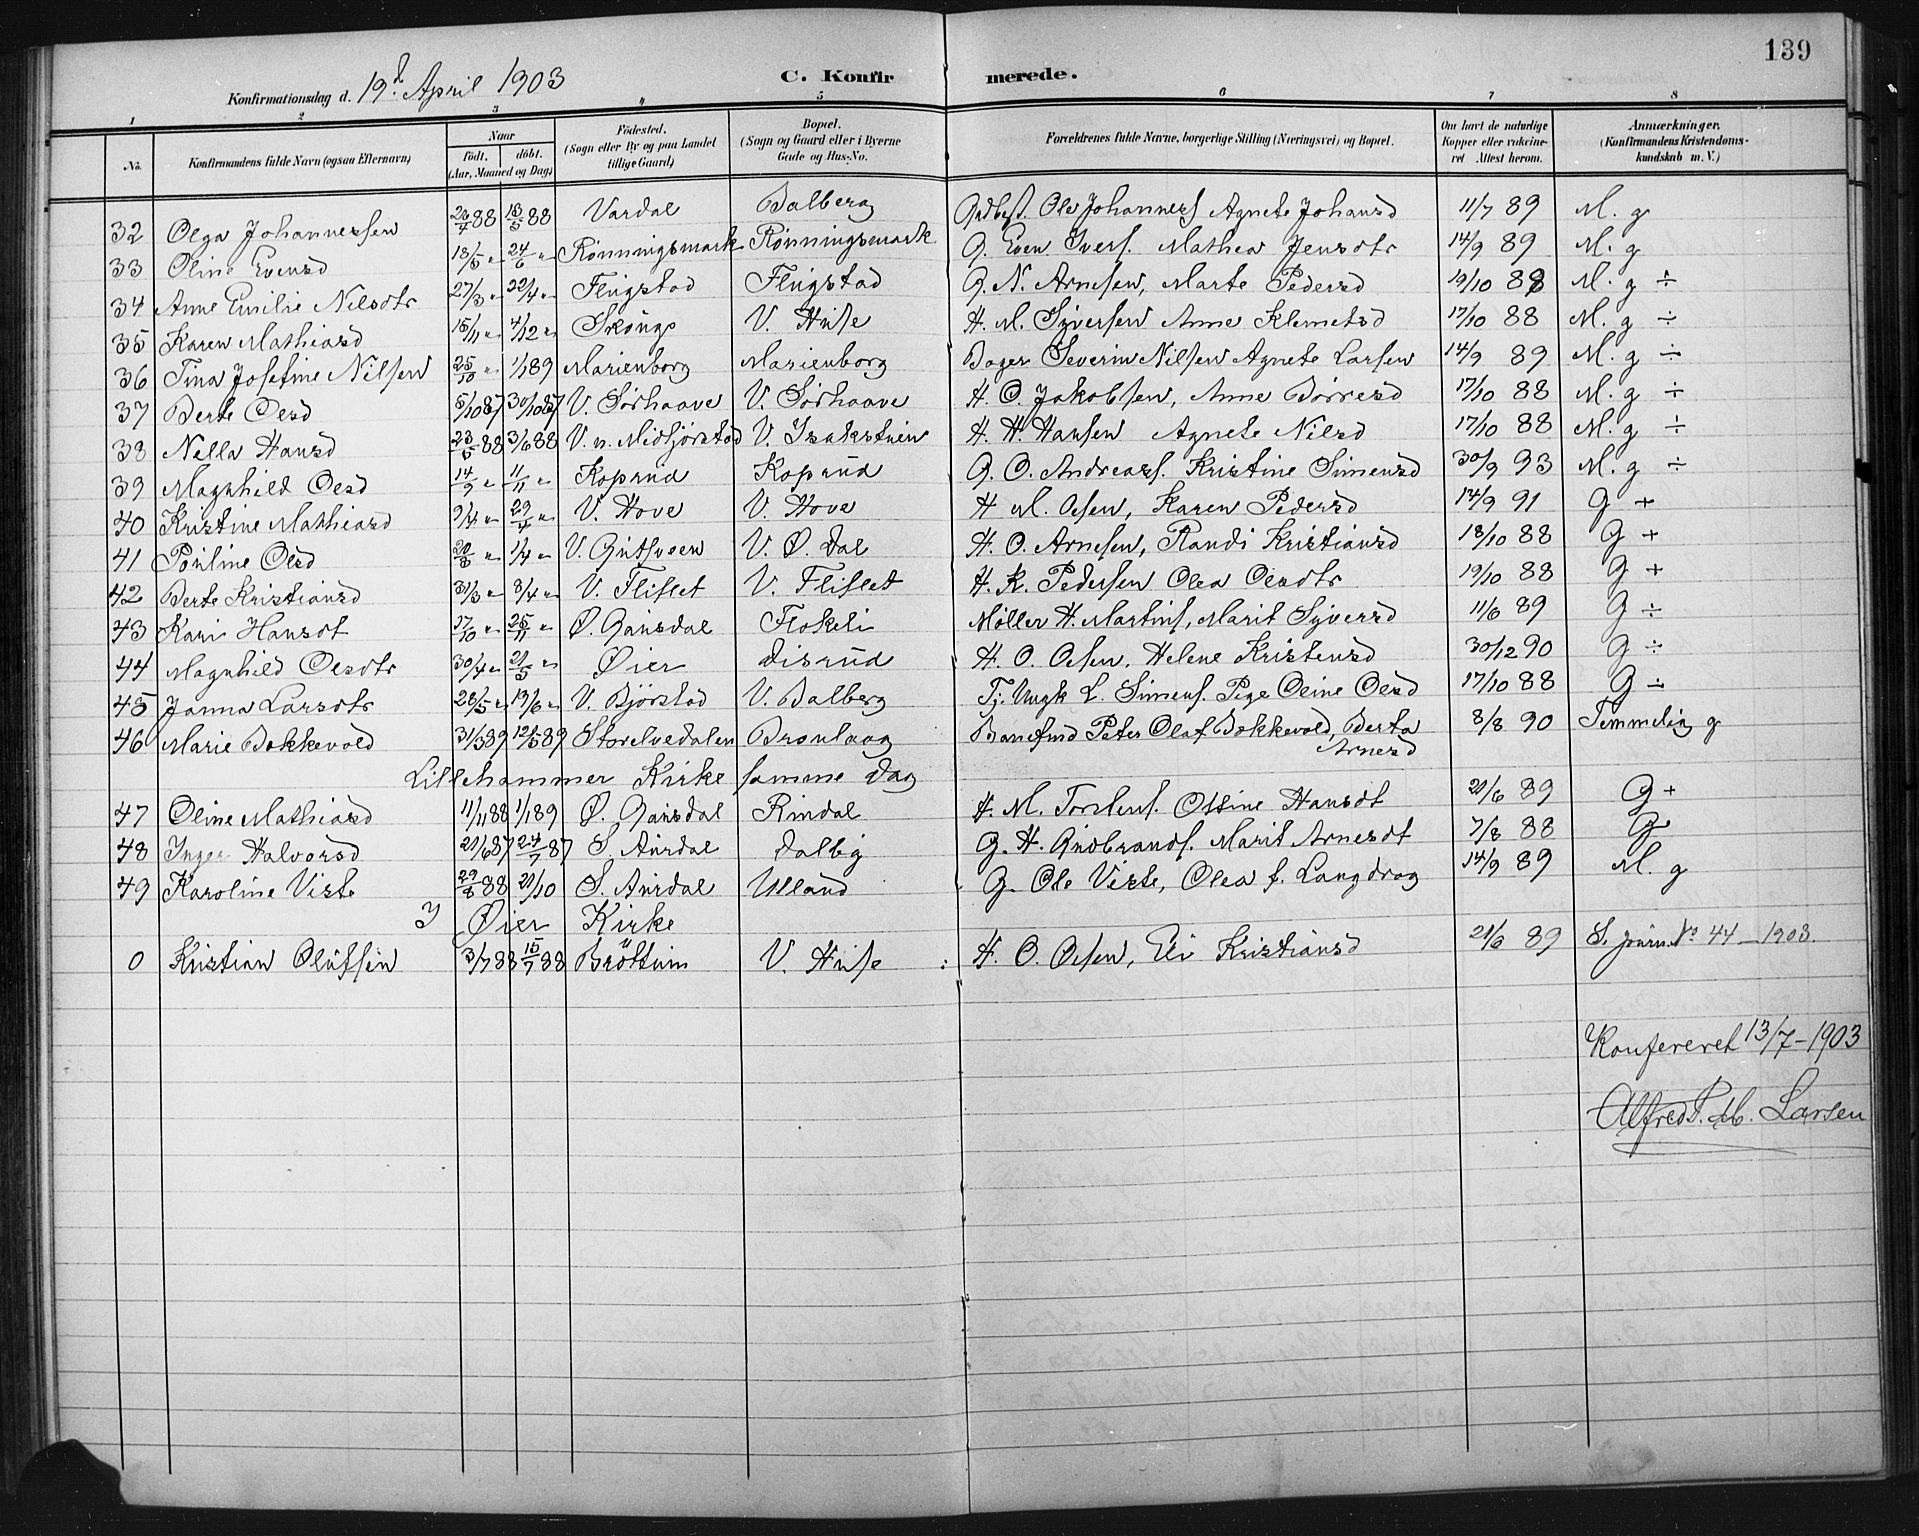 139
C. Konfirmerede.
Konfirmationsdag d. 19d. April 1903
1 2 3 4 5 6 7 8
No. Konfirmandens fulde Navn (ogsaa Efternavn) Naar født. døbt. (Aar, Maaned og Dag) Fødested. (Sogn eller By og paa Landet tillige Gaard) Bopæl. (Sogn og Gaard eller i Byerne Gade og Hus-No. Forældrenes fulde Navne, borgerlige Stilling (Næringsvei) og Bopæl. Om havt de naturlige Kopper eller vakcineret Attest herom. Anmærkninger. (Konfirmandens Kristendomskundskab m. V.)
32 Olga Johannessen 88 13/5 88 Vardal Balberg Ole Johanness Agnete Johansd 11/7 89 M. g
33 Oline Evensd 18/5 " 24/6 " Rønningsmark Rønningsmark G. Even Ivers. Mathea Jensdtr 14/9 89 M. g
34 Anne Emilie Nilsdtr 27/3 " 22/4 " Flugstad Flugstad G. N. Arnesen, Marte Pedersd 19/10 88 M. g ÷
35 Karen Mathiasd 15/11 " 4/12 " Skougs V. Huse H. M. Syversen Anne Klemetsd 17/10 88 M. g ÷
36 Tina Josefine Nilsen 25/10 " 1/1 89 Marienborg Marienborg Bager Severin Nilsen Agnete Larsen 14/9 89 M. g ÷
37 Berte Olsd 5/10 87 30/10 87 V. Sørhaave V. Sørhaave H. O. Jakobsen, Anne Børresd 17/10 88 M. g ÷
38 Nella Hansd 23/5 88 3/6 88 V. n. Midtjørstad V. Isakstuen H. H. Hansen Agnete Nilsd 17/10 88 M. g ÷
39 Magnhild Olsd 14/9 " 11/11 " Koprud Koprud G. O. Andreass. Kristine Simensd 30/9 93 M. g ÷
40 Kristine Mathiasd 9/4 " 29/4 " V. Hove V. Hove H M. Olsen, Karen Pedersd 14/9 91 G +
41 Pouline Olsd 20/3 " 1/4 " V. Gutsveen V. Ø. Dal H. O. Arnesen, Randi Kristiansd 18/10 88 G +
42 Berte Kristiansd 31/3 " 8/4 " V. Fliflet V. Fliflet H. K. Pedersen Olea Olsdtr 19/10 88 G +
43 Kari Hansdt 17/10 " 25/11 " Ø. Gausdal Flokeli Møller H. Martins, Marit Syversd 11/6 89 G ÷
44 Magnhild Olsdtr 30/4 " 21/5 " Øier Disrud H. O. Olsen. Helene Kristensd 30/12 90 G ÷
45 Janna Larsdtr 28/5 " 17/6 " V. Bjørstad V. Balberg Tj. Ungk L. Simens. Pige Oline Olsd 17/10 88 G ÷
46 Marie Bokkevold 31/3 89 12/5 89 Storelvedalen Bronlaag Peter Olaf Bokkevold, Berta Arnesd 8/8 90 Temmelig g
Lillehammer Kirke samme Dag
47 Oline Mathiasd 11/11 88 1/1 89 Ø. Gausdal Rindal H. M. Torstens. Ottine Hansdt 21/6 89 G +
48 Inger Halvorsd 21/6 87 24/7 87 S. Aurdal Dalby G. H. Gudbrands. Marit Arnesdt 7/8 88 G
49 Karoline Viste 29/8 88 21/10 S. Aurdal Ulland G. Ole Viste, Olea f. Langdrag 14/9 89 M. g
I Øier Kirke
0 Kristian Olufsen 3/7 88 15/7 88 Brøttum V. Huse H. O. Olsen, Eli Kristiansd 21/6 89 S. journ. No 44 - 1903.
Konfereret 13/7-1903
Alfred P. M. Larsen